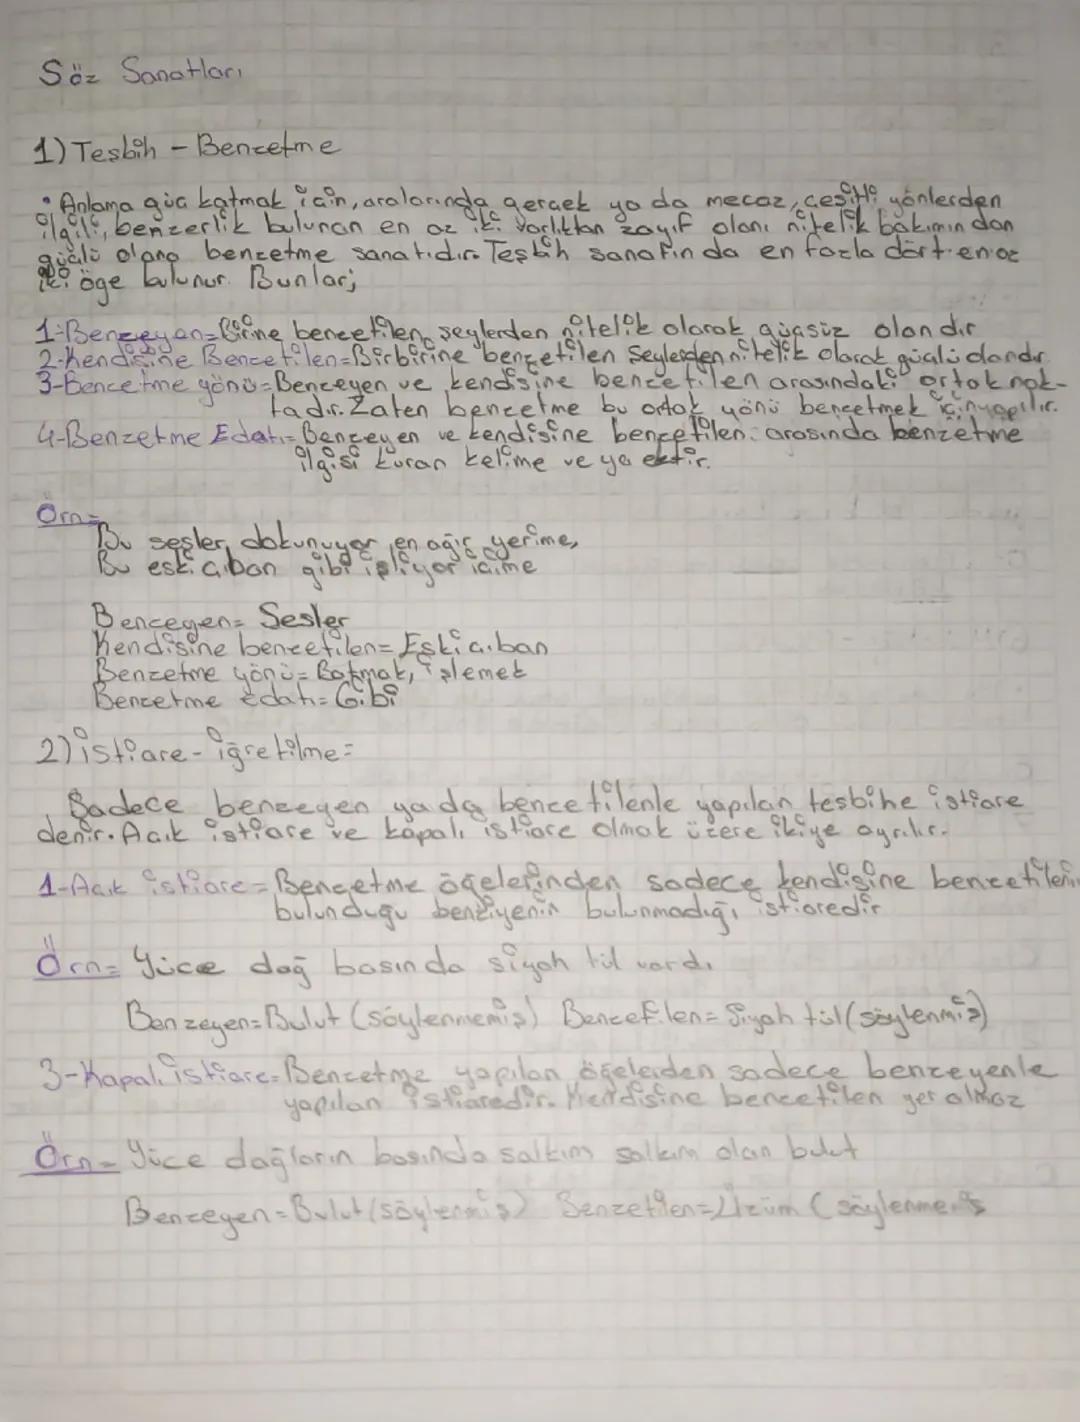 Söz Sanatları
1) Teşbih - Benzetme
• Anlama güc katmak için, aralarında gerçek ya da mecaz, çeşitli yönlerden
ilgili, benzerlik bulunan en az iki varlıktan zayıf olanı nitelik bakımından
güçlü olana benzetme sanatıdır. Teşbih sanatında en fazla dört en az
iki öge bulunur. Bunlar;
1-Benzeyen=Birine benzetilen şeylerden nitelik olarak güçsüz olandır
2-Kendisine Benzetilen=Birbirine benzetilen şeylerden nitelik olarak güçlü olandır.
3-Benzetme yönü=Benzeyen ve kendisine benzetilen arasındaki ortak nok-
tadır. Zaten benzetme bu ortak yönü benzetmek için yapılır.
4-Benzetme Edatı=Benzeyen ve kendisine benzetilen arasında benzetme
ilgisi kuran kelime ve ya ektir.
Örn=
Bu sesler dokunuyor en ağır yerime,
Bu eski çıban gibi işliyor içime
Benzeyen= Sesler
Kendisine benzetilen= Eski çıban
Benzetme yönü= Batmak, işlemek
Benzetme edatı= Gibi
2) istiare - iğretilme=
Sadece benzeyen ya da benzetilenle yapılan teşbihe istiare
denir. Acık istiare ve kapalı istiare olmak üzere ikiye ayrılır.
1-Acık istiare= Benzetme öğelerinden sadece kendisine benzetilenin
bulunduğu benziyenin bulunmadığı istiaredir
Örn= Yüce dağ basında siyah tül vardı
Benzeyen=Bulut (söylenmemiş) Benzetilen= Siyah tül (söylenmiş)
3-Kapalı istiare=Benzetme yapılan öğelerden sadece benzeyenle
yapılan istiaredir. Kendisine benzetilen yer almaz
Örn= Yüce dağların basında salkım salkım olan bulut
Benzeyen=Bulut (söylenmiş) Benzetilen=Üzüm (söylenmemiş